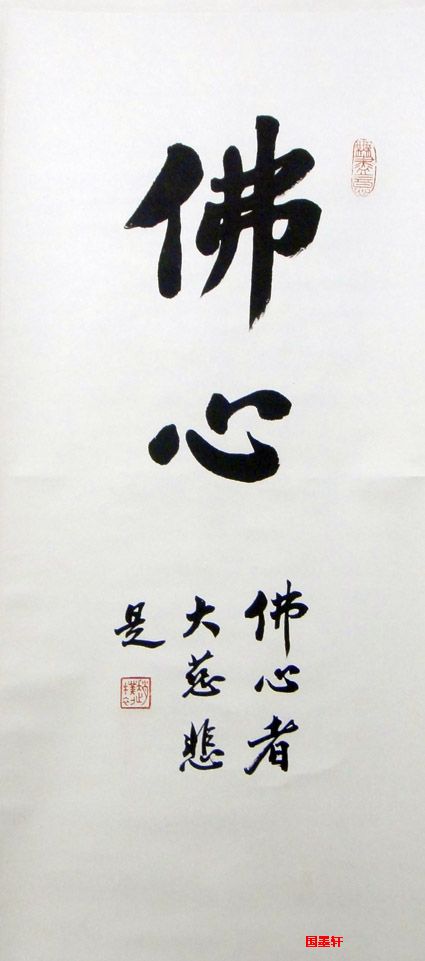 佛心
佛心者
大慈悲
是
国墨轩